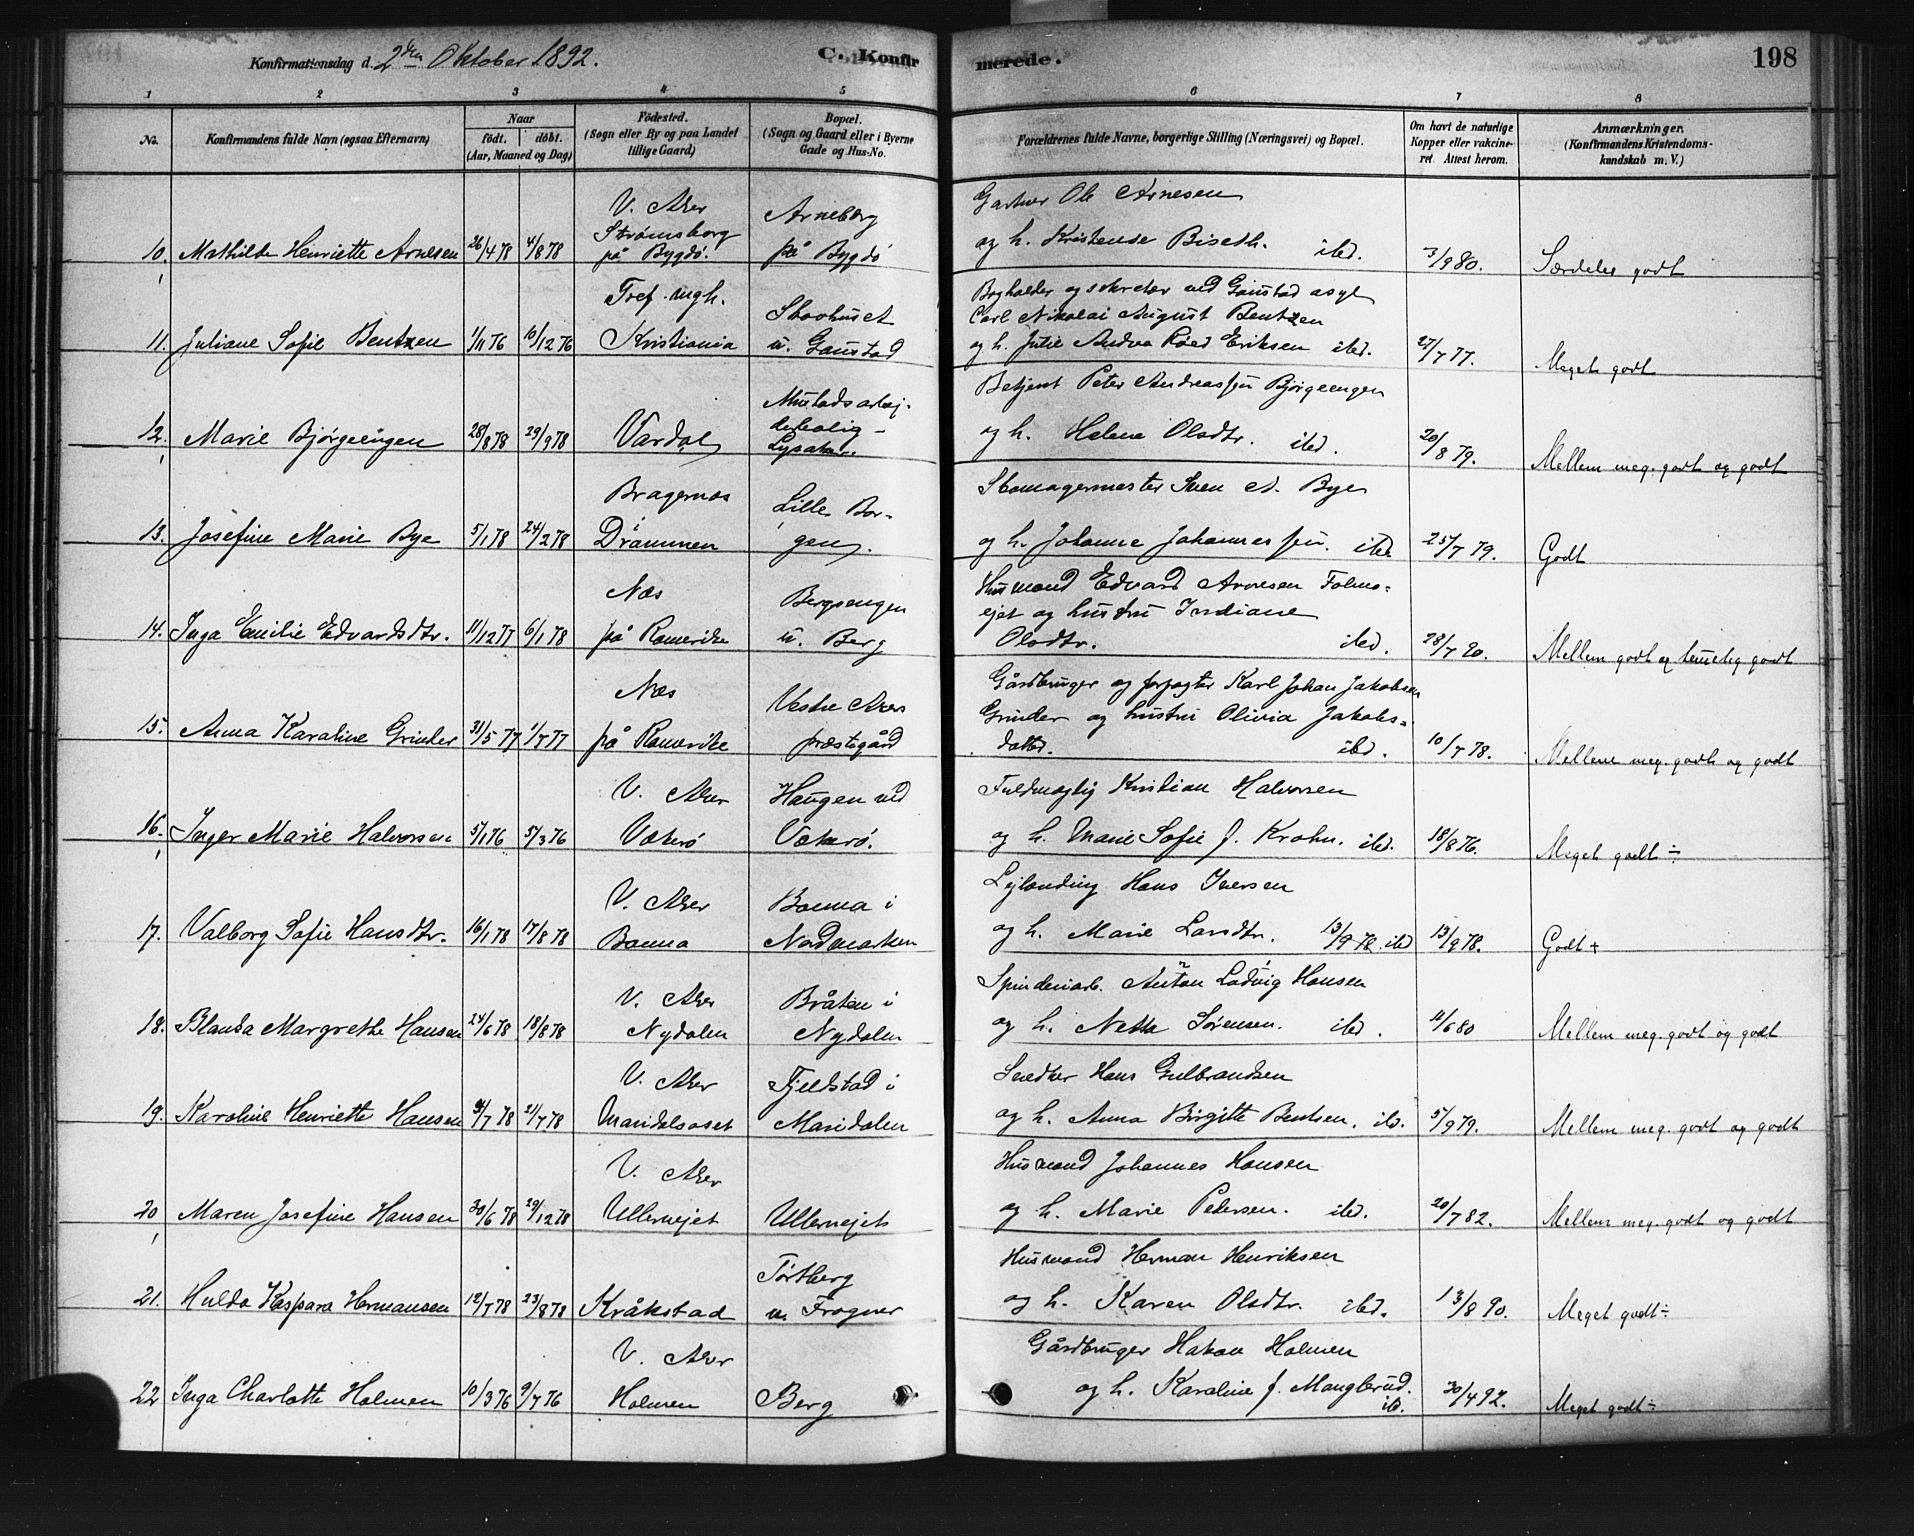 Konfirmationsdag d. 2den Oktober 1892.
C. Konfirmerede.
198
1 2 3 4 5 6 7 8
No.
Konfirmandens fulde Navn (ogsaa Efternavn)
Naar
født. døbt.
(Aar, Maaned og Dag)
Fødested.
(Sogn eller By og paa Landet
tillige Gaard)
Bopæl.
(Sogn og Gaard eller i Byerne
Gade og Hus-No.
Forældrenes fulde Navne, borgerlige Stilling (Næringsvei) og Bopæl.
Om havt de naturlige
Kopper eller vakcine-
ret. Attest herom.
Anmærkninger.
(Konfirmandens Kristendoms-
kundskab m. V.)
10. Mathilde Henriette Arnesen 26/4 78 4/8 78
V. Aker
Strømsborg
på Bygdø.
Arneberg
på Bygdø
Gartner Ole Arnesen
og h. Kristense Biseth. ibd.
3/9 80.
Særdeles godt
11. Juliane Sofie Bentzen 1/11 76 10/12 76
Tref. mgh.
Kristiania
Skovhuset
u. Gaustad
Bogholder og sekretær ved Gaustad asyl
Carl Nikolai August Bentzen
og h. Julie Andrea Røed Eriksen ibd.
27/7 77.
Meget godt
12. Marie Bjørgeengen 28/8 78 29/9 78
Vardal
Mustadsarbej-
derbolig -
Lysaker.
Betjent Peter Andreassen Bjørgeengen
og h. Helene Olsdtr. ibd.
20/8 79.
Mellem meg. godt og godt
13. Josefine Marie Bye 5/1 78 24/2 78
Bragernæs
Drammen
Lille Bor-
gen.
Skomagermester Sven A. Bye
og h. Johanne Johannessen. ibd.
25/7 79.
Godt
14. Inga Emilie Edvardsdtr. 11/12 77 6/1 78
Næs
på Romerike
Bergsengen
u. Berg
Husmand Edvard Arnesen Folmo-
ejet og hustru Indiane
Olsdtr. ibd.
28/7 90.
Mellem godt og temelig godt
15. Anna Karoline Grinder 31/5 77 1/7 77
Næs
på Romerike
Vestre Aker
præstegård
Gårdbruger og forpagter Karl Johan Jakobsen
Grinder og hustru Olivia Jakobs-
datter. ibd.
10/7 78.
Mellem meg. godt og godt
16. Inger Marie Halvorsen 5/1 76 5/3 76
V. Aker
Vækerø
Haugen ved
Vækerø.
Fuldmægtig Kristian Halvorsen
og h. Marie Sofie f. Krohn. ibd.
18/8 76.
Meget godt ÷
17. Valborg Sofie Hansdtr. 16/1 78 17/8 78
V. Aker
Bonna
Bonna i
Nordmarken
Lejlending Hans Iversen
og h. Marie Larsdtr. 13/9 78 ibd
13/9 78.
Godt +
18. Blanda Margrethe Hansen 24/6 78 18/8 78
V. Aker
Nydalen
Bråten i
Nydalen
Spinderiarb. Anton Ludvig Hansen
og h. Netta Sørensen. ibd.
11/6 80
Mellem meg. godt og godt
19. Karoline Henriette Hansen 4/7 78 21/7 78
V. Aker
Maridalsoset
Fjeldstad i
Maridalen
Snedker Hans Gulbrandsen
og h. Anna Birgitte Bentsen. ibd.
5/9 79.
Mellem meg. godt og godt
20. Maren Josefine Hansen 30/6 78 29/12 78
V. Aker
Ullernejet
Ullernejet
Husmand Johannes Hansen
og h. Marie Pedersen. ibd.
20/7 82.
Mellem meg. godt og godt
21. Hulda Kaspara Hermansen 12/7 78 23/8 78
Kråkstad
Tørtberg
u. Frogner
Husmand Herman Henriksen
og h. Karen Olsdtr. ibd.
13/8 90.
Meget godt ÷
22 Inga Charlotte Holmen 10/3 76 9/7 76
V. Aker
Holmen
Berg
Gårdbruger Hakon Holmen
og h. Karoline f. Manglerud.
ibd.
30/4 92.
Meget godt ÷